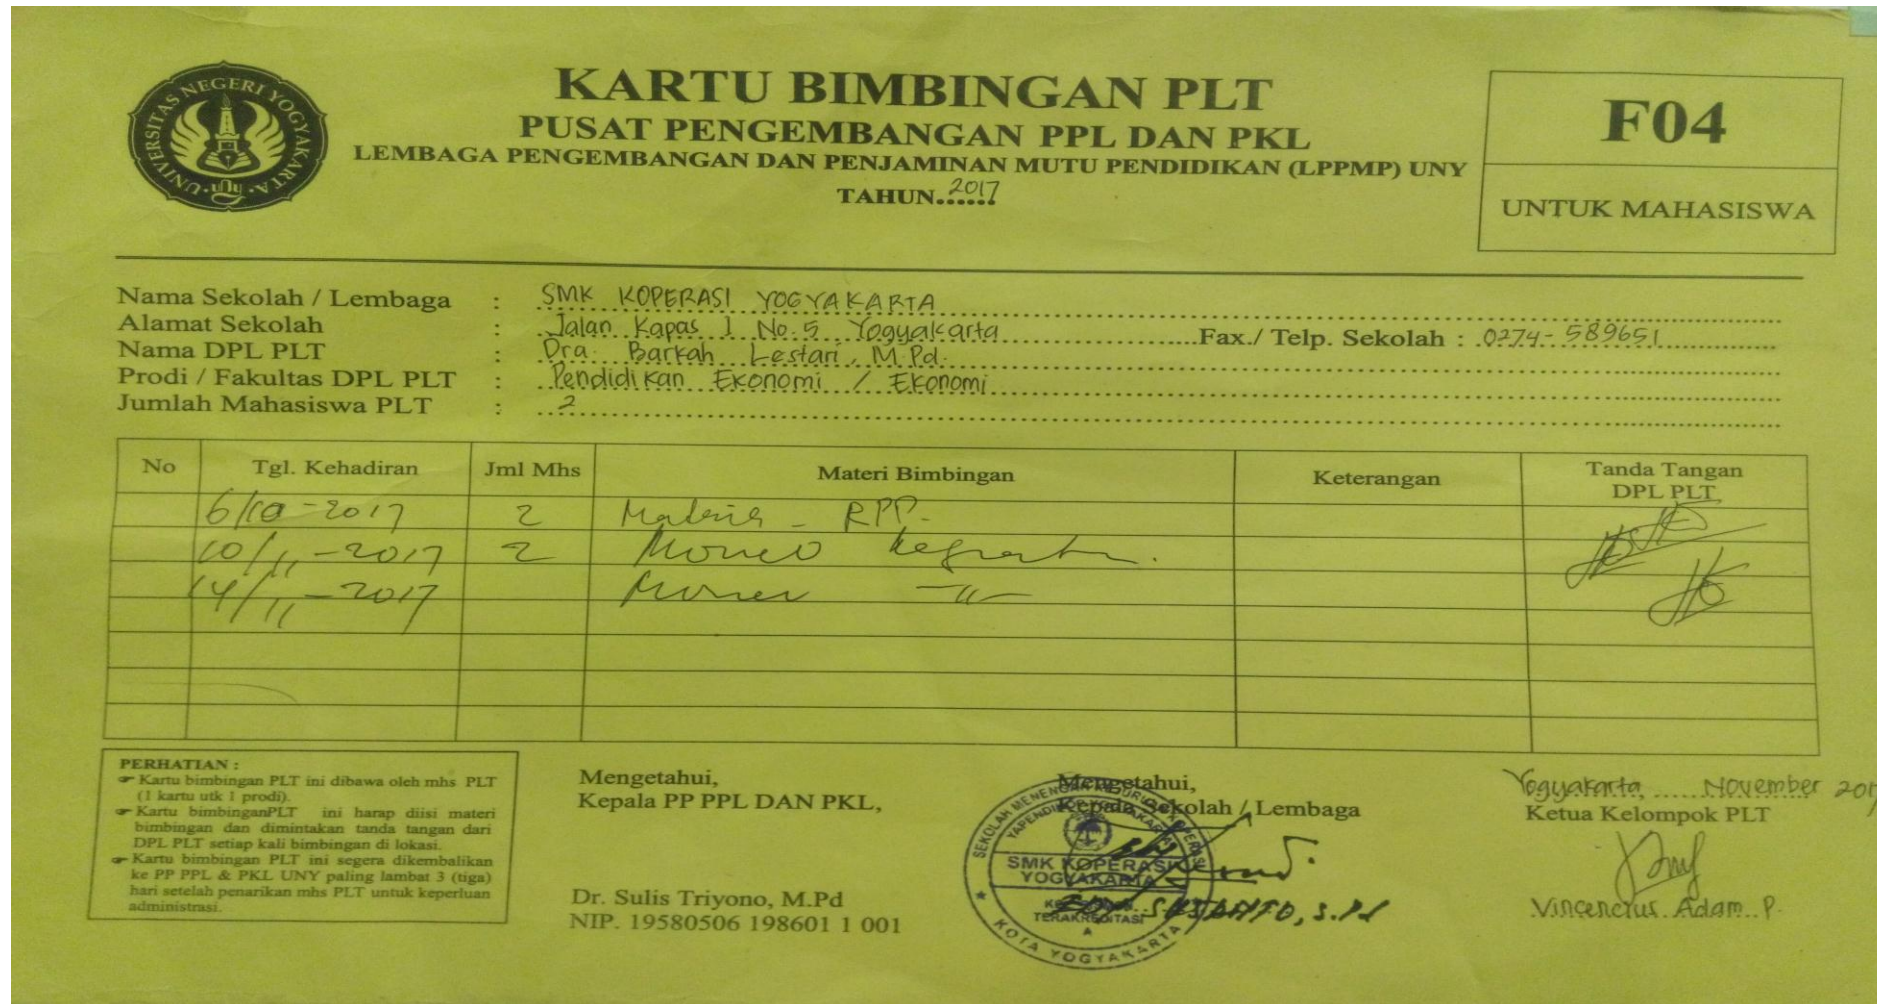 UNIVERSITAS NEGERI YOGYAKARTA
KARTU BIMBINGAN PLT
PUSAT PENGEMBANGAN PPL DAN PKL
LEMBAGA PENGEMBANGAN DAN PENJAMINAN MUTU PENDIDIKAN (LPPMP) UNY
TAHUN...... 2017
F04
UNTUK MAHASISWA
Nama Sekolah / Lembaga : SMK KOPERASI YOGYAKARTA
Alamat Sekolah : Jalan Kapas I No. 5 Yogyakarta Fax./ Telp. Sekolah : 0274-589651
Nama DPL PLT : Dra. Barkah Lestari, M.Pd.
Prodi / Fakultas DPL PLT : Pendidikan Ekonomi / Ekonomi
Jumlah Mahasiswa PLT : 2
No Tgl. Kehadiran Jml Mhs Materi Bimbingan Keterangan Tanda Tangan DPL PLT
6/10-2017 2 RPP.
10/11-2017 2
14/11-2017 -"-
PERHATIAN :
☞ Kartu bimbingan PLT ini dibawa oleh mhs PLT
(1 kartu utk 1 prodi).
☞ Kartu bimbinganPLT ini harap diisi materi
bimbingan dan dimintakan tanda tangan dari
DPL PLT setiap kali bimbingan di lokasi.
☞ Kartu bimbingan PLT ini segera dikembalikan
ke PP PPL & PKL UNY paling lambat 3 (tiga)
hari setelah penarikan mhs PLT untuk keperluan
administrasi.
Mengetahui,
Kepala PP PPL DAN PKL,
Dr. Sulis Triyono, M.Pd
NIP. 19580506 198601 1 001
Mengetahui,
Kepala Sekolah / Lembaga
SMK KOPERASI
YOGYAKARTA
TERAKREDITASI
A
KOTA YOGYAKARTA
S.Pd
Yogyakarta, ...... November 2017
Ketua Kelompok PLT
Vincencius Adam P.